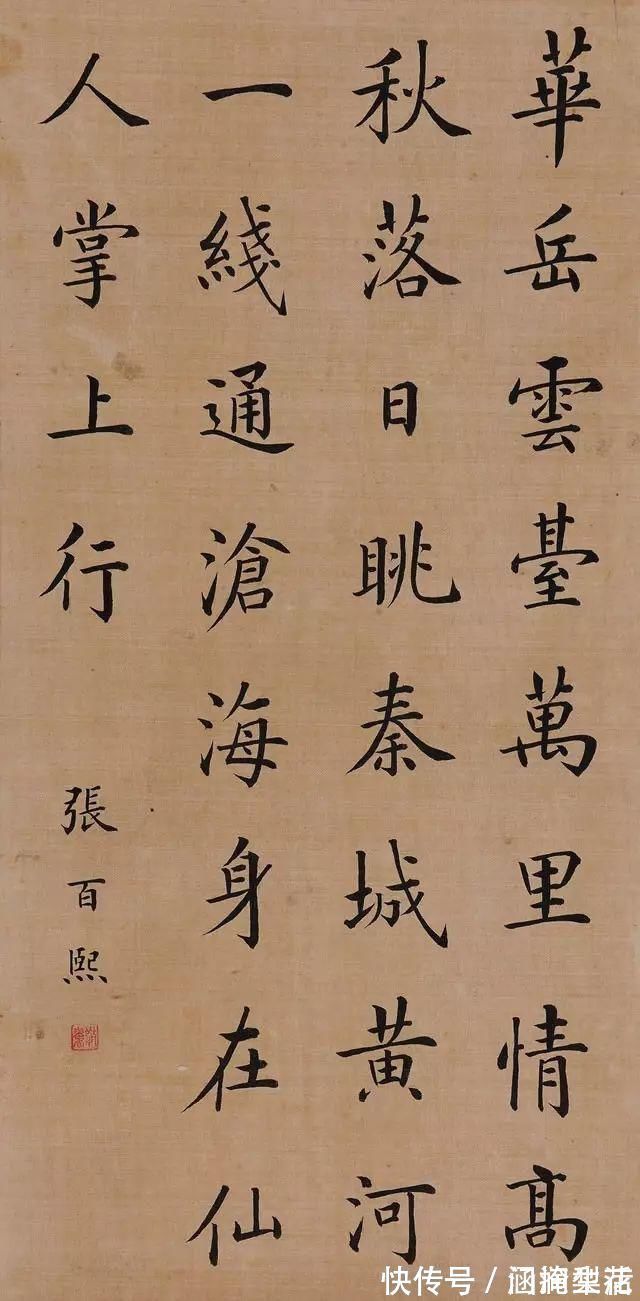 華岳雲臺萬里情高
秋落日眺秦城黄河
一綫通滄海身在仙
人掌上行
張百熙
快传号／涵